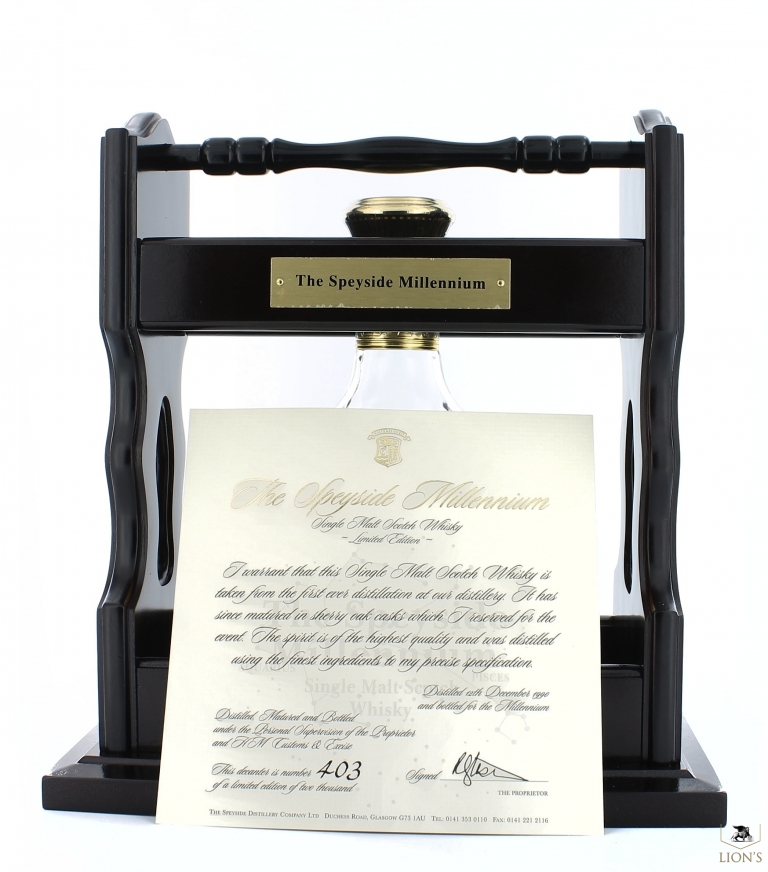 The Speyside Millennium
The Speyside Millennium
Single Malt Scotch Whisky
~ Limited Edition ~
I warrant that this Single Malt Scotch Whisky is
taken from the first ever distillation at our distillery. It has
since matured in sherry oak casks which I reserved for the
event. The spirit is of the highest quality and was distilled
using the finest ingredients to my precise specification.
Millennium
PISCES
Single Malt Scotch
Whisky
Distilled 12th December 1990
and bottled for the Millennium
Distilled, Matured and Bottled
under the Personal Supervision of the Proprietor
and H M Customs & Excise
This decanter is number 403
of a limited edition of two thousand
Signed
THE PROPRIETOR
THE SPEYSIDE DISTILLERY COMPANY LTD DUCHESS ROAD, GLASGOW G73 1AU TEL: 0141 353 0110 FAX: 0141 221 2116
LION'S